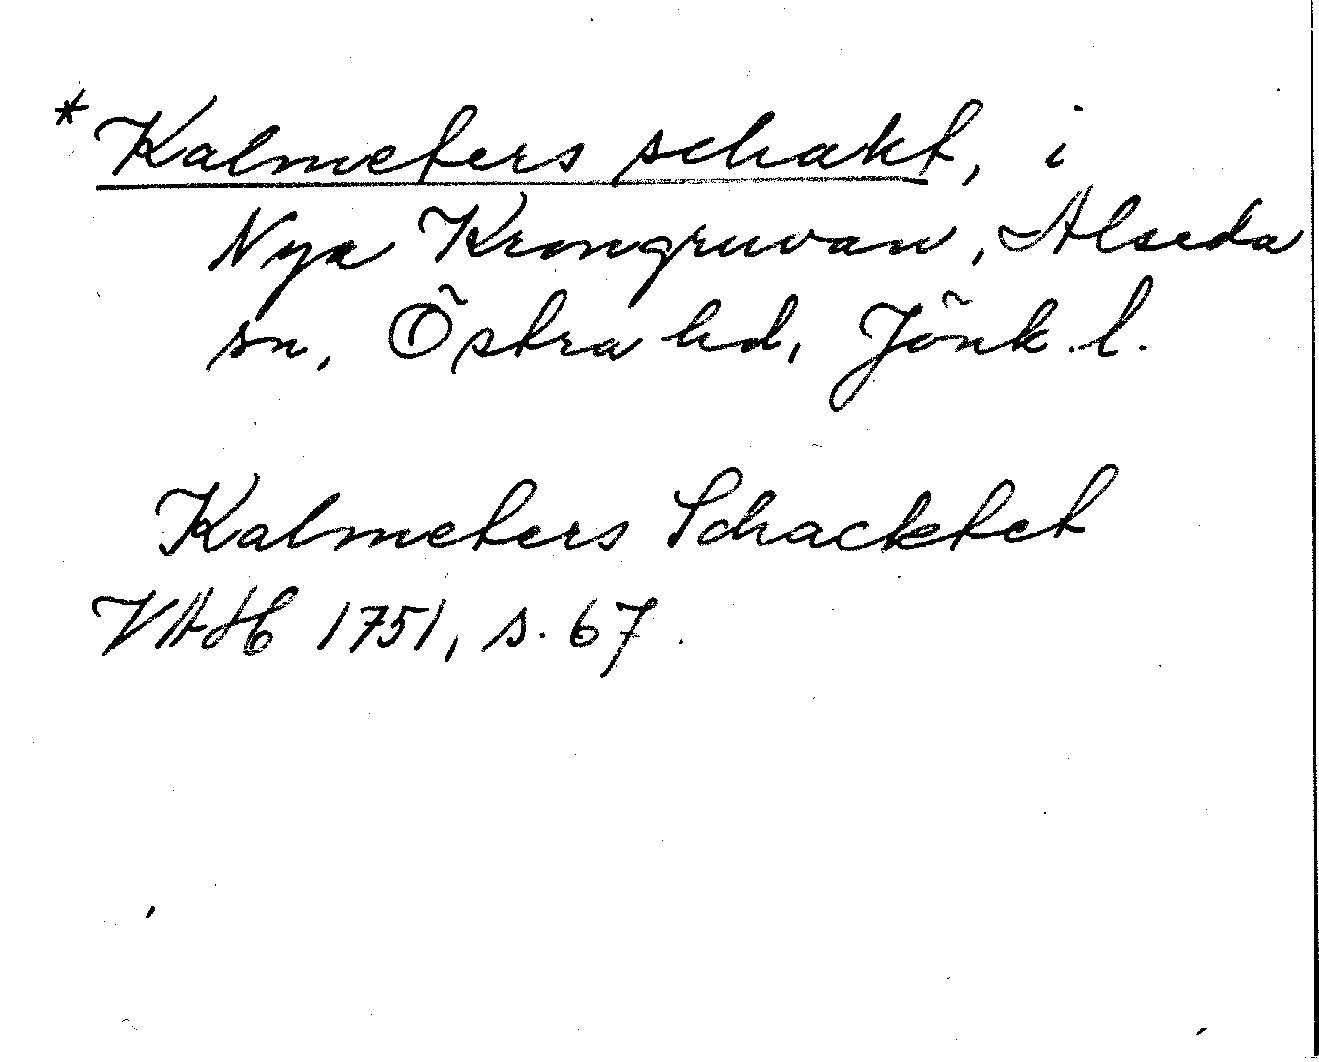 * Kalmeters schakt, i
Nya Krongruvan, Alseda
sn, Östra hd, Jönk.l.
Kalmeters Schacktet
VAH 1751, s. 67.